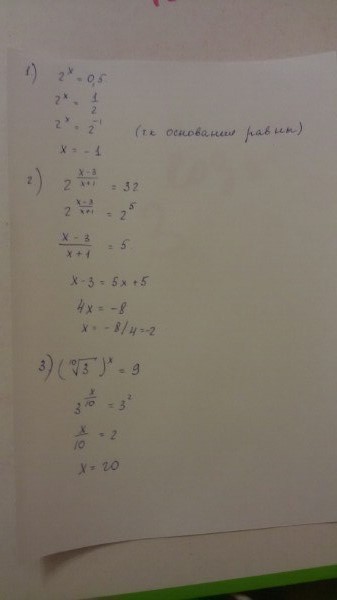 1) 2^x = 0,5
2^x = 1/2
2^x = 2^-1 (тк основания равны)
x = -1
2) 2^((x-3)/(x+1)) = 32
2^((x-3)/(x+1)) = 2^5
(x-3)/(x+1) = 5
x-3 = 5x+5
4x = -8
x = -8/4 = -2
3) (¹⁰√3)^x = 9
3^(x/10) = 3^2
x/10 = 2
x = 20